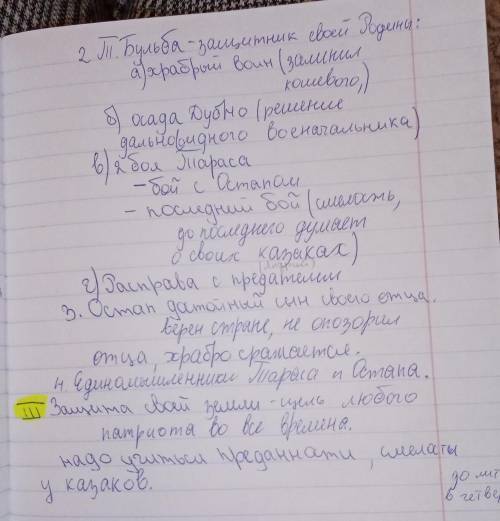 2. Т. Бульба - защитник своей Родины:
а) храбрый воин (заменил
кошевого,)
б) осада Дубно (решение
дальновидного военачальника)
в) 2 боя Тараса
- бой с Остапом
- последний бой (смелость,
до последнего думает
о своих казаках)
г) Расправа с предателем
3. Остап достойный сын своего отца.
верен стране, не опозорил
отца, храбро сражается.
4. Единомышленники Тараса и Остапа.
III Защита свой земли - цель любого
патриота во все времена.
надо учиться преданности, смелости
у казаков.
до
в четвер